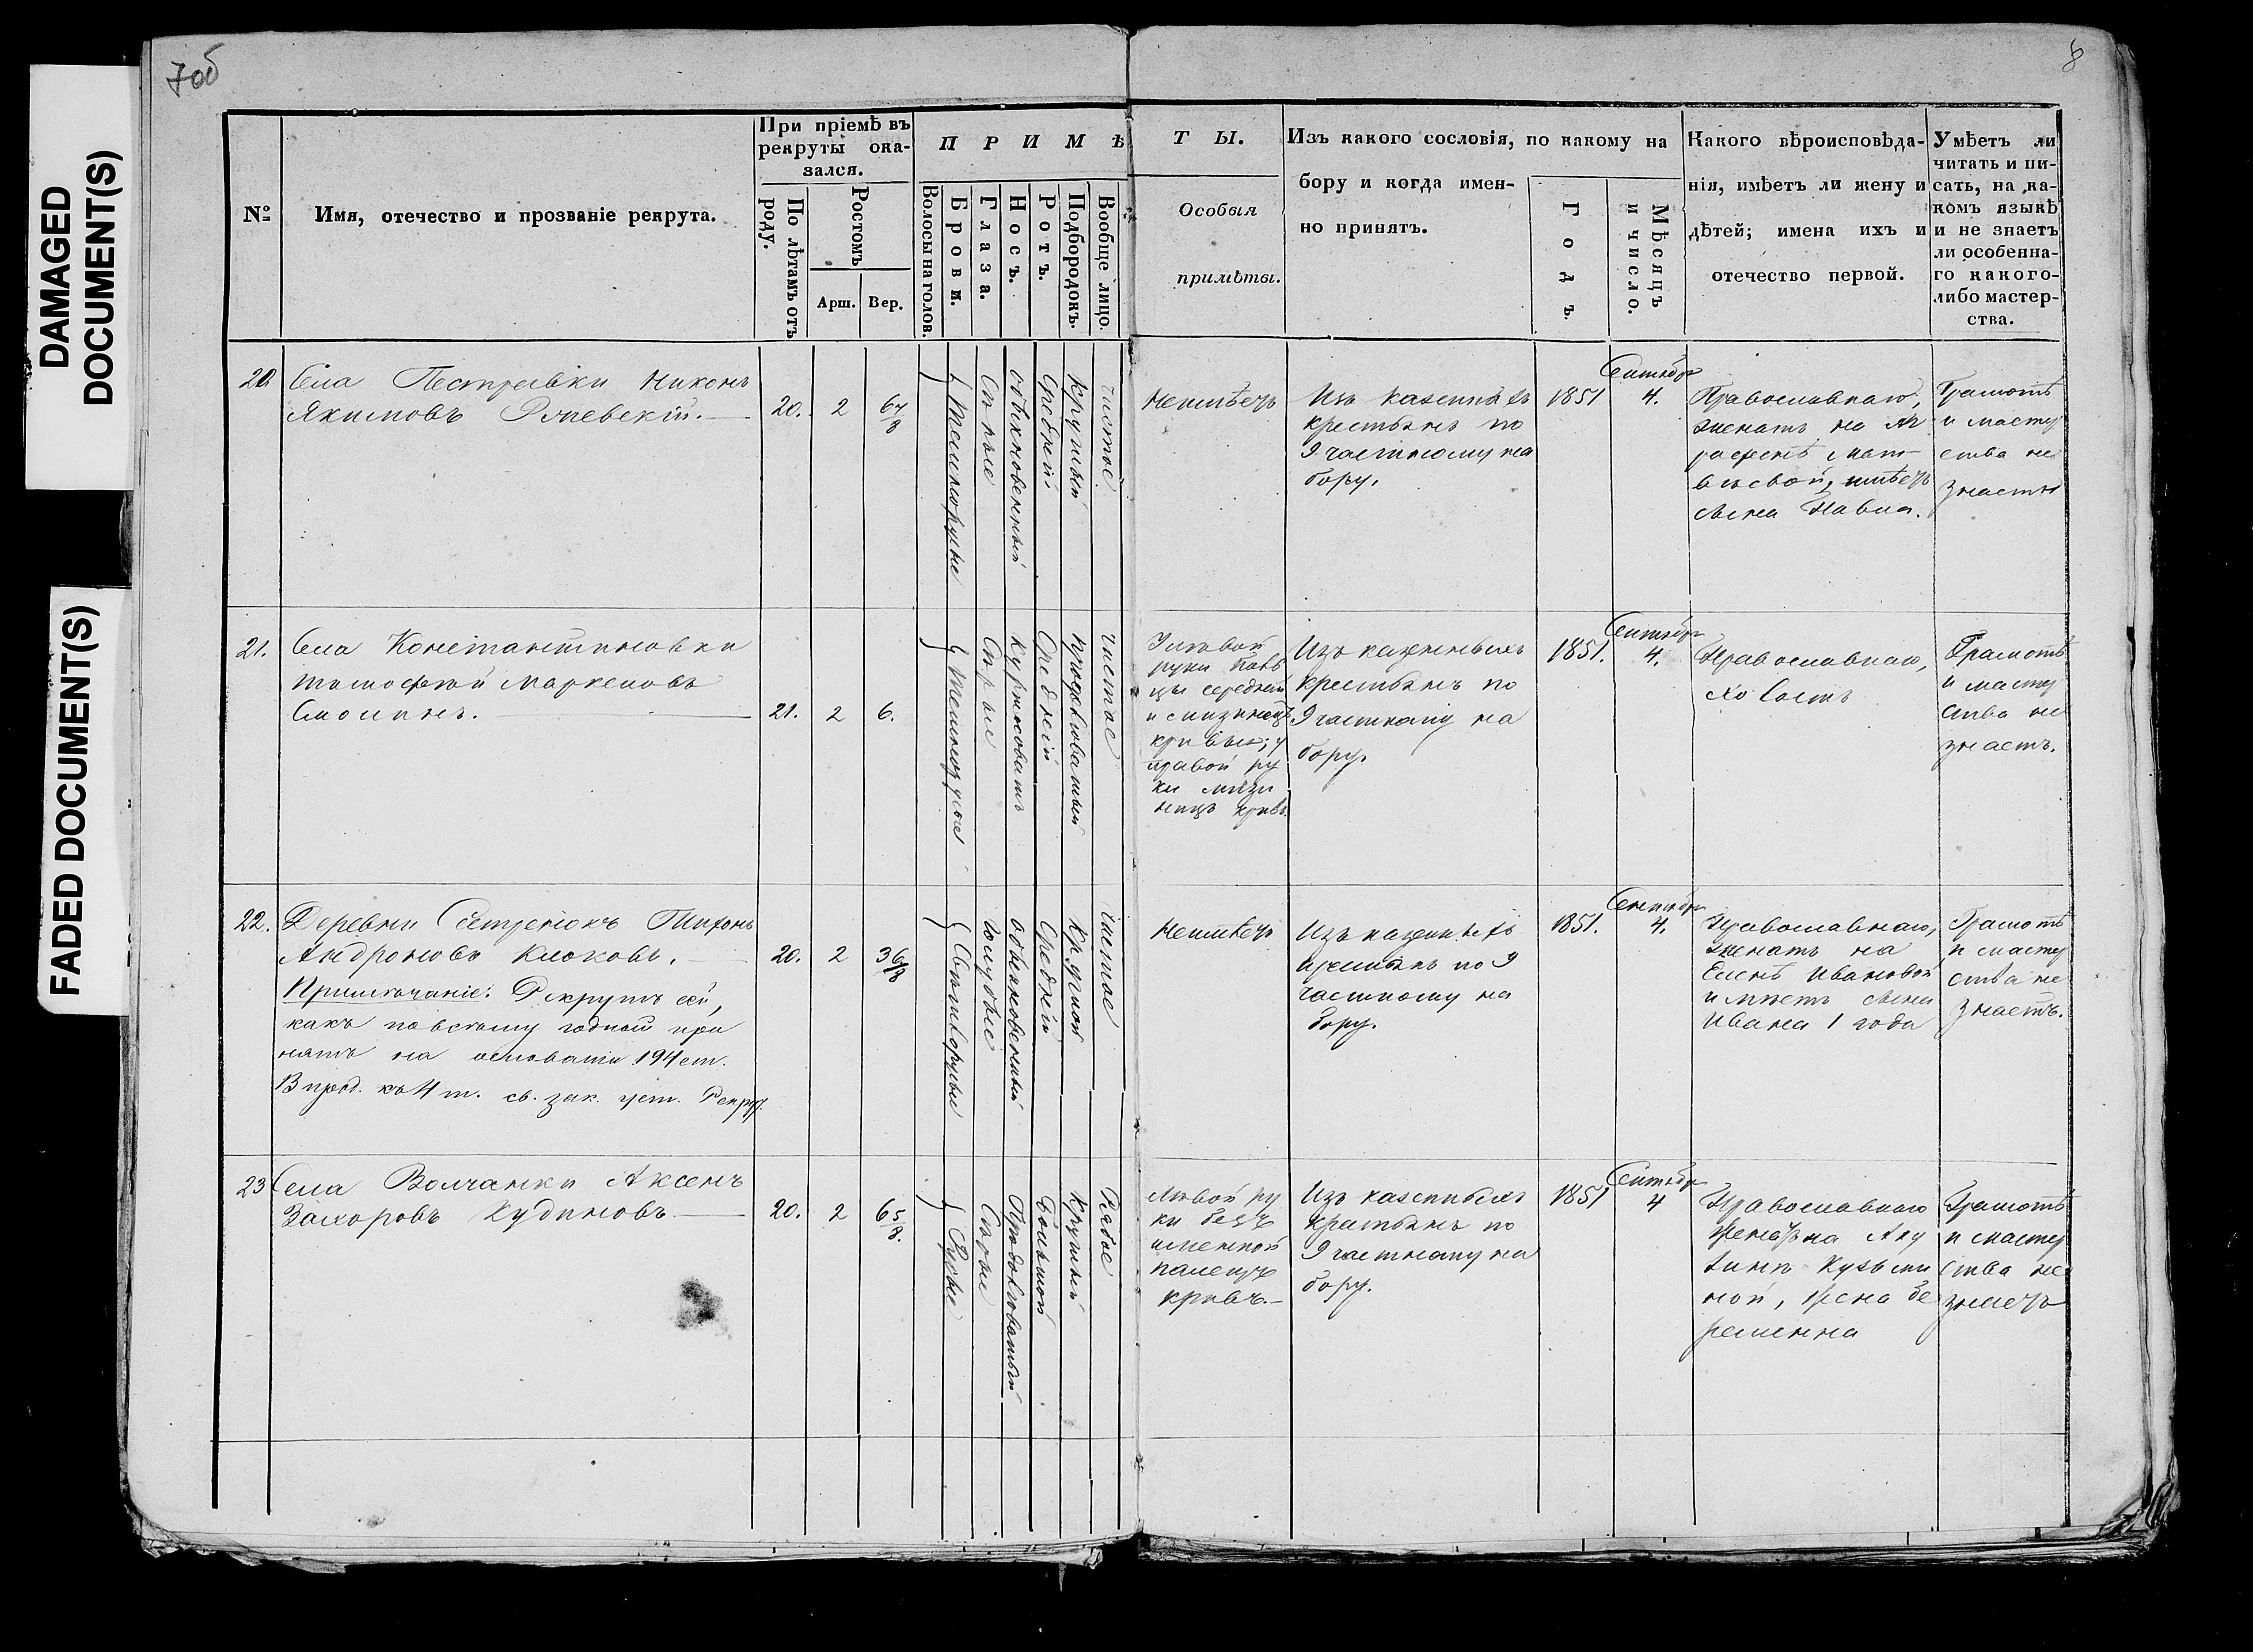 DAMAGED
DOCUMENT(S)
FADED DOCUMENT(S)
7об
8
№
Имя, отечество и прозваніе рекрута.
При пріемѣ въ
рекруты ока-
зался.
По лѣтамъ отъ
роду.
Ростомъ
Арш.
Вер.
ПРИМѢ
Волосы на голов.
Брови.
Глаза.
Носъ.
Ротъ.
Подбородокъ.
Вообще лицо.
ТЫ.
Особыя
примѣты.
Изъ какого сословія, по какому на
бору и когда имен-
но принятъ.
Годъ.
Мѣсяцъ
и число.
Какого вѣроисповѣда-
нія, имѣетъ ли жену и
дѣтей; имена ихъ и
отечество первой.
Умѣетъ ли
читать и пи-
сать, на ка-
комъ языкѣ
и не знаетъ
ли особенна-
го какого-
либо мастер-
ства.
20
Села Пестравки Никонъ
Якимовъ
20.
2
6 4/8
Темнорусые
Сѣрые
обыкновенный
Средній
Круглый
чистое
Неимѣетъ
Изъ казенныхъ
крестьянъ по
9 частному на
бору.
1851
Сентября
4.
Православнаго,
женатъ на
Мат-
вѣевой, имѣетъ
сына Павла.
Грамотѣ
и масте
ства не
знаетъ
21.
Села Константиновки
Тимофей Маркеловъ
21.
2
6.
Темнорусые
Сѣрые
Курносоватъ
Средній
продолговатый
Чистое
У лѣвой
руки паль
цы середній
и мизинецъ
кривы; у
правой ру
ки мизи
нецъ кривъ.
Изъ казенныхъ
крестьянъ по
9 частному на
бору.
1851.
Сентября
4.
Православнаго,
холостъ
Грамотѣ
и масте
ства не
знаетъ.
22.
Деревни Тихонъ
Андроновъ Клоковъ.
Примѣчаніе: Рекрутъ сей,
какъ по всему годный при
нятъ на основаніи 194 ст.
В прод. къ 4 т. св. зак. уст. Рекру.
20.
2
3 6/8
Свѣтлорусые
Голубые
Обыкновенный
Средній
Круглой
Чистое
Неимѣетъ
Изъ казенныхъ
крестьянъ по 9
частному на
бору.
1851.
Сентября
4.
Православнаго,
женатъ на
Еленѣ Ивановой
имѣетъ сына
Ивана 1 года
Грамотѣ
и масте
ства не
знаетъ.
23
Села Волчанки Аксенъ
Захоровъ Кудиновъ
20.
2
6 5/8.
Русые
Сѣрые
Продолговатый
Большой
Круглый
Рябое
Лѣвой ру
ки безъ
именной
палецъ
кривъ.
Изъ казенныхъ
крестьянъ по
9 частному на
бору.
1851
Сентября
4
Православнаго
женатъ на Аку
линѣ Кузьми
ной, жена бе
ременна
Грамотѣ
и масте
ства не
знаетъ